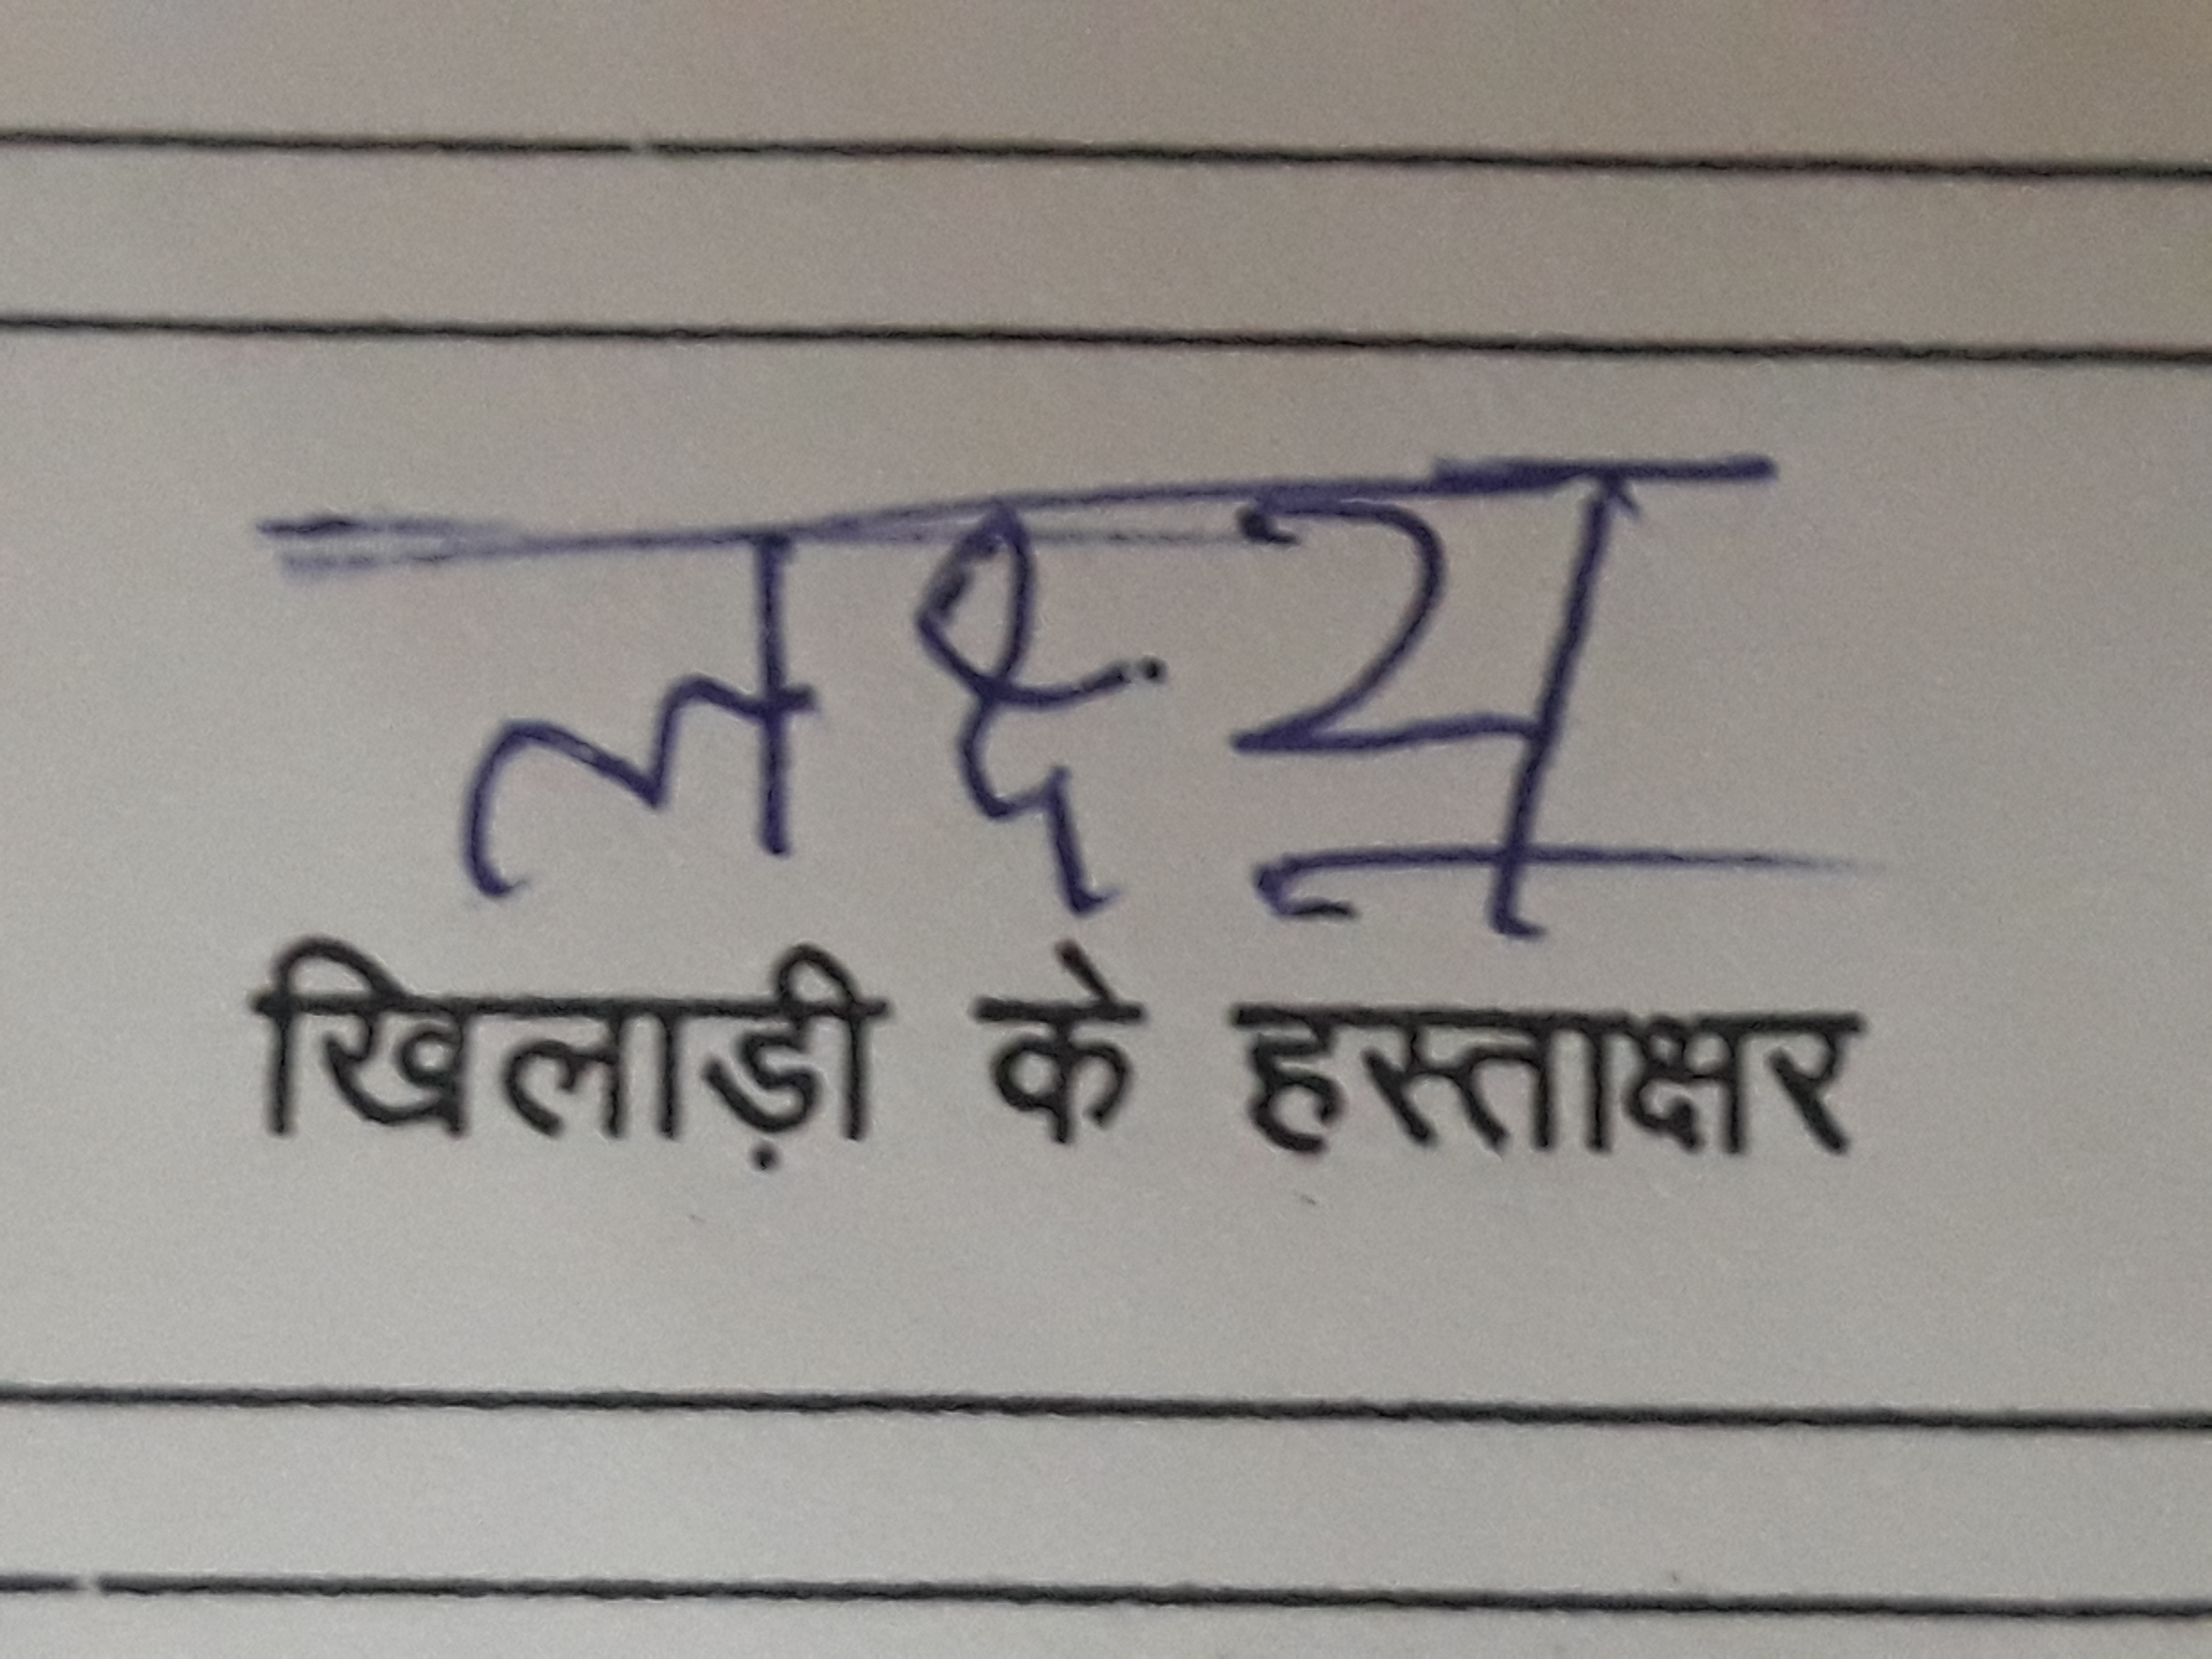 लक्ष्य
खिलाड़ी के हस्ताक्षर